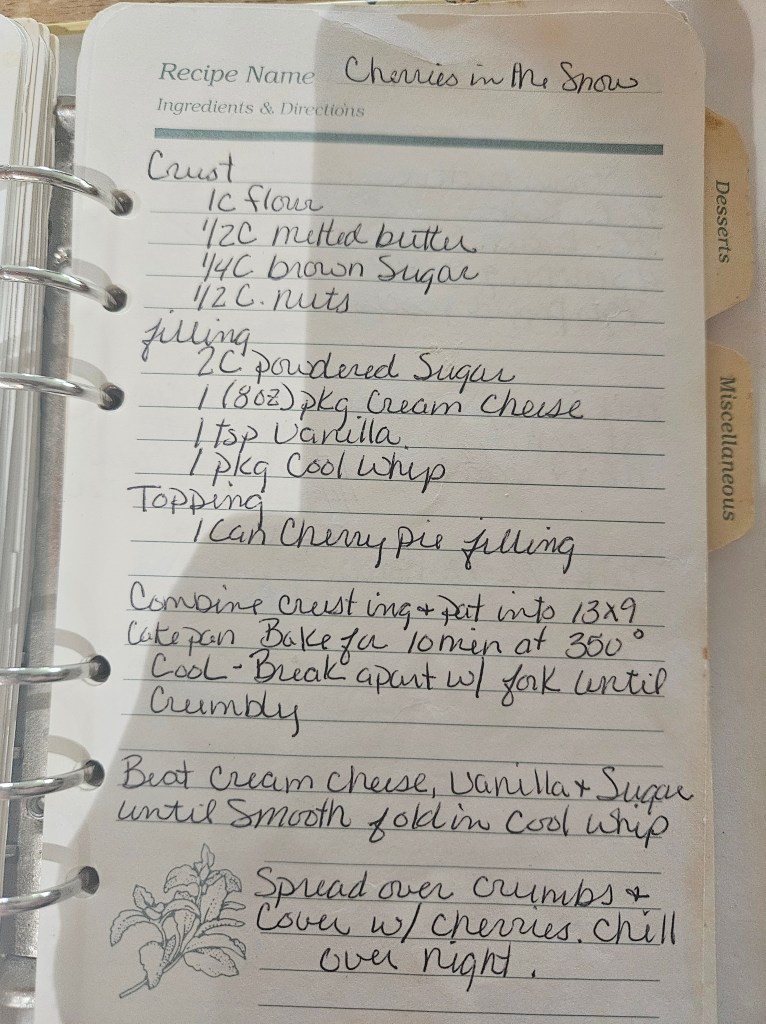 Recipe Name Cherries in the Snow
Ingredients & Directions
Crust
1C flour
1/2C melted butter
1/4C brown Sugar
1/2 C. nuts
filling
2C powdered Sugar
1 (8oz) pkg Cream Cheese
1 tsp Vanilla
1 pkg Cool Whip
Topping
1 Can Cherry pie filling
Combine crust ing + pat into 13x9
Cake pan Bake for 10 min at 350°
Cool - Break apart w/ fork until
Crumbly
Beat Cream Cheese, Vanilla + Sugar
until Smooth fold in Cool Whip
Spread over crumbs +
Cover w/ cherries. Chill
over night.
Desserts
Miscellaneous